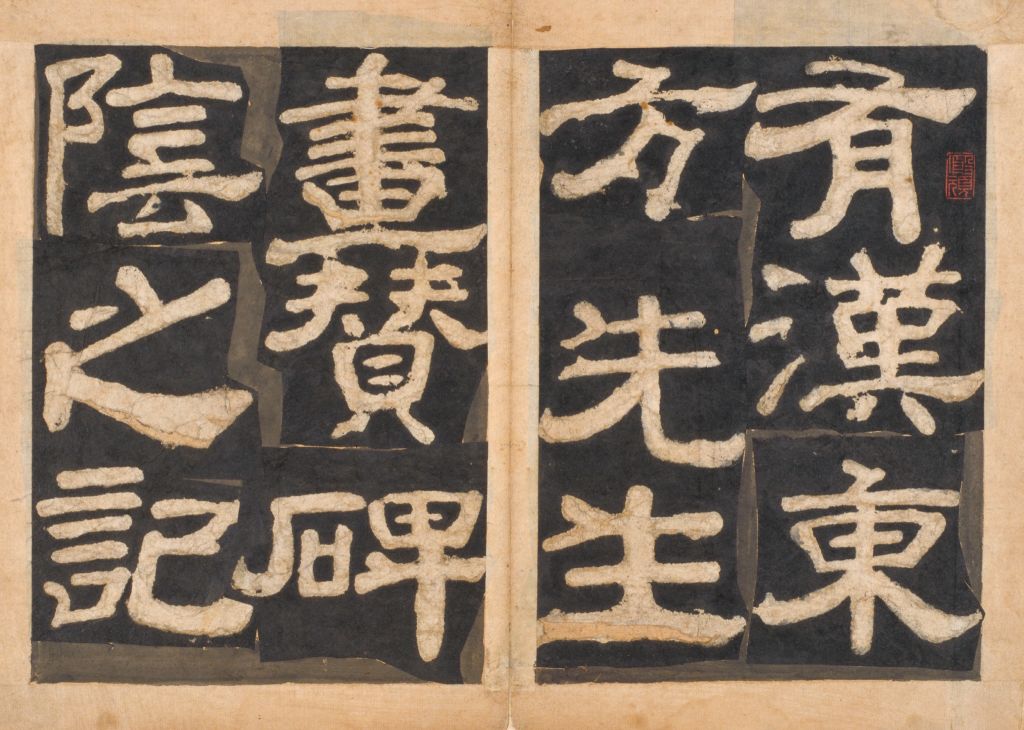 有漢東
方先生
畫賛碑
陰之記